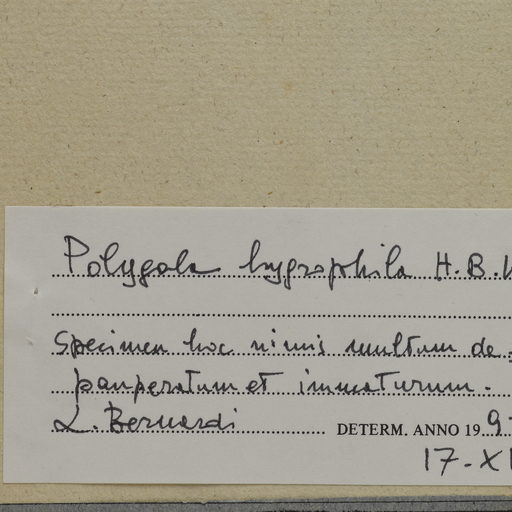 Polygala hygrophila H.B.
Specimen hoc nimis multum de-
pauperatum et immaturum.
L. Bernardi DETERM. ANNO 19 9
17-XI